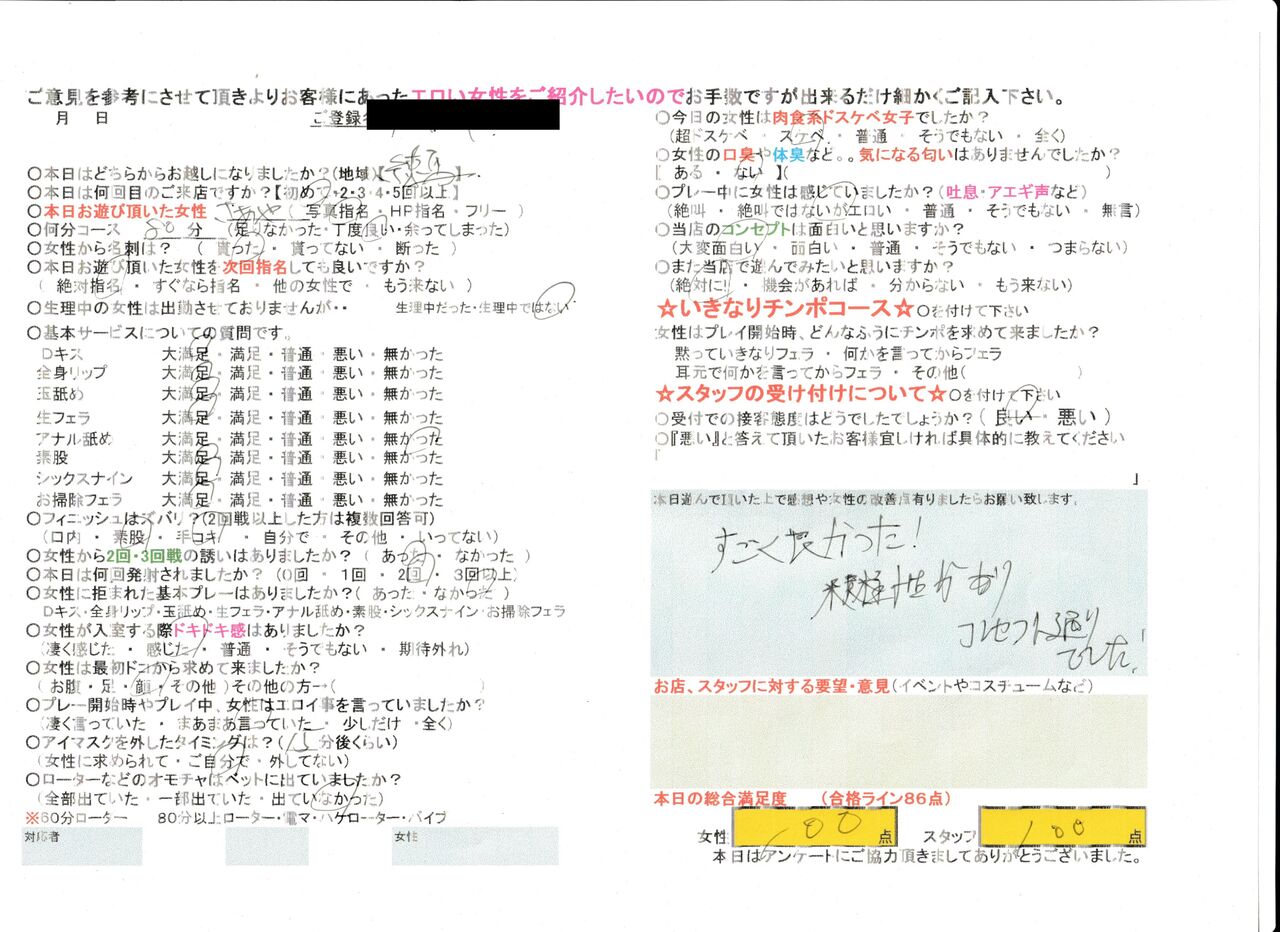 ご意見を参考にさせて頂きよりお客様にあったエロい女性をご紹介したいのでお手数ですが出来るだけ細かくご記入下さい。
月 日 ご登録
○本日はどちらからお越しになりましたか?(地域)【 】
○本日は何回目のご来店ですか?【初めて・2・3・4・5回以上】
○本日お遊び頂いた女性 (写真指名・HP指名・フリー )
○何分コース 80 分 (足りなかった・丁度良い・余ってしまった)
○女性から名刺は? ( 貰った ・ 貰ってない ・ 断った )
○本日お遊び頂いた女性を次回指名しても良いですか?
( 絶対指名 ・ すぐなら指名 ・ 他の女性で ・ もう来ない )
○生理中の女性は出勤させておりませんが・・ 生理中だった・生理中ではない
○基本サービスについての質問です。
Dキス 大満足・満足・普通・悪い・無かった
全身リップ 大満足・満足・普通・悪い・無かった
玉舐め 大満足・満足・普通・悪い・無かった
生フェラ 大満足・満足・普通・悪い・無かった
アナル舐め 大満足・満足・普通・悪い・無かった
素股 大満足・満足・普通・悪い・無かった
シックスナイン 大満足・満足・普通・悪い・無かった
お掃除フェラ 大満足・満足・普通・悪い・無かった
○フィニッシュはズバリ?(2回戦以上した方は複数回答可)
(口内 ・ 素股 ・ 手コキ ・ 自分で ・ その他 ・ いってない)
○女性から2回・3回戦の誘いはありましたか? ( あった ・ なかった )
○本日は何回発射されましたか? (0回 ・ 1回 ・ 2回 ・ 3回以上)
○女性に拒まれた基本プレーはありましたか? ( あった ・ なかった )
Dキス・全身リップ・玉舐め・生フェラ・アナル舐め・素股・シックスナイン・お掃除フェラ
○女性が入室する際ドキドキ感はありましたか?
(凄く感じた ・ 感じた ・ 普通 ・ そうでもない ・ 期待外れ)
○女性は最初ドコから求めて来ましたか?
( お腹・足・顔・その他 )その他の方→( )
○プレー開始時やプレイ中、女性はエロイ事を言っていましたか?
(凄く言っていた ・ まあまあ言っていた ・ 少しだけ ・全く)
○アイマスクを外したタイミングは?(15分後くらい)
(女性に求められて・ご自分で・外してない)
○ローターなどのオモチャはベットに出ていましたか?
(全部出ていた・一部出ていた・出ていなかった)
※60分ローター 80分以上ローター・電マ・ハケローター・バイブ
対応者 女性
○今日の女性は肉食系ドスケベ女子でしたか?
(超ドスケベ ・ スケベ ・ 普通 ・ そうでもない ・ 全く)
○女性の口臭や体臭など。。気になる匂いはありませんでしたか?
[ ある・ない 】( )
○プレー中に女性は感じていましたか?(吐息・アエギ声など)
(絶叫 ・ 絶叫ではないがエロい ・ 普通 ・ そうでもない ・ 無言)
○当店のコンセプトは面白いと思いますか?
(大変面白い ・ 面白い ・ 普通 ・ そうでもない ・ つまらない)
○また当店で遊んでみたいと思いますか?
(絶対に!! ・ 機会があれば ・ 分からない ・ もう来ない)
☆いきなりチンポコース☆○を付けて下さい
女性はプレイ開始時、どんなふうにチンポを求めて来ましたか?
黙っていきなりフェラ ・ 何かを言ってからフェラ
耳元で何かを言ってからフェラ ・ その他( )
☆スタッフの受け付けについて☆○を付けて下さい
○受付での接客態度はどうでしたでしょうか?( 良い ・ 悪い )
○『悪い』と答えて頂いたお客様宜しければ具体的に教えてください
「 」
本日遊んで頂いた上で感想や女性の改善点有りましたらお願い致します。
すごく良かった!
積極性があり
コンセプト通り
でした。
」
お店、スタッフに対する要望・意見(イベントやコスチュームなど)
本日の総合満足度 (合格ライン86点)
女性 100 点 スタッフ 100 点
本日はアンケートにご協力頂きましてありがとうございました。